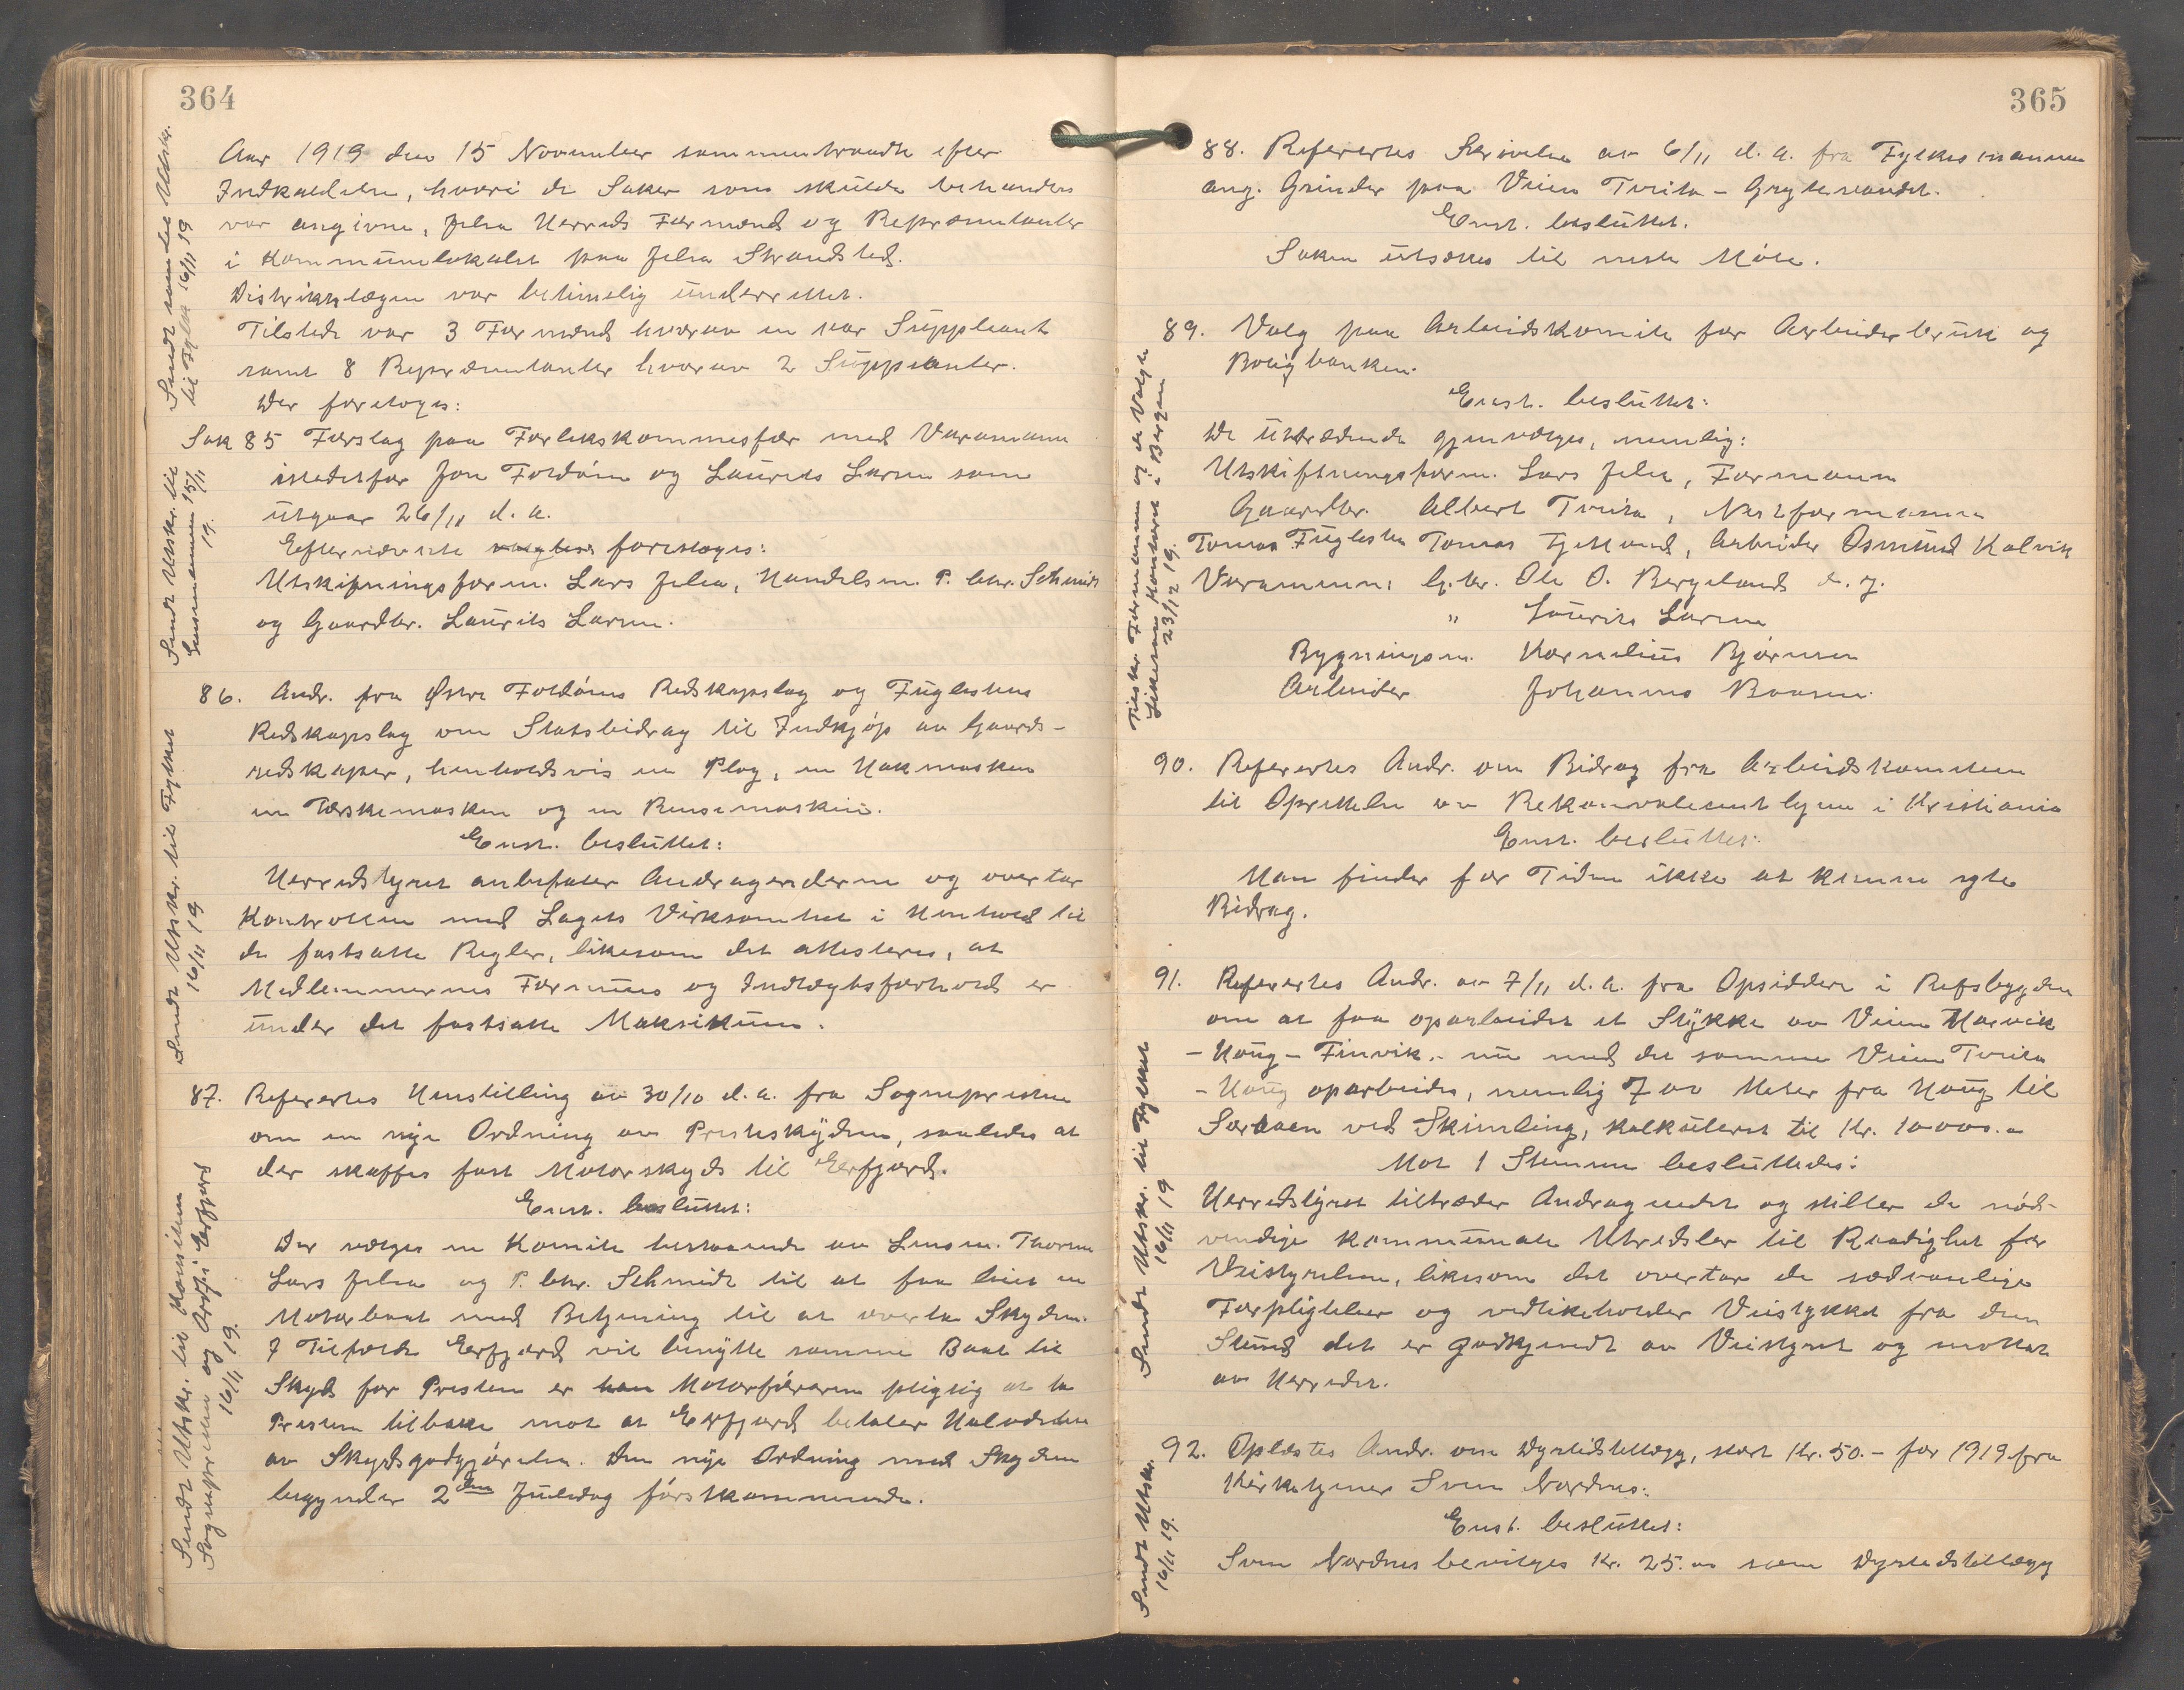 364
Aar 1919 den 15 November sammentraadte efter
Indkaldelse, hvori de Saker som skulde behandles
var angivne, Jelsa Herreds Formænd og Repræsentanter
i Kommunelokalet paa Jelsa Strandsted.
Distriktslægen var betimelig underrettet.
Tilstede var 3 Formænd hvorav en var Suppleant
samt 8 Repræsentanter hvorav 2 Suppleanter.
Der foretoges:
Sak 85 Forslag paa Forlikskommisær med Varamann
istedetfor Jon Foldøen og Laurits Larsen som
utgaar 26/11 d. a.
Efternævnte foreslaaes:
Utskiftningsform. Lars Jelsa, Handelsm. P. Chr. Schmidt
og Gaardbr. Laurits Larsen.
86. Andr. fra Østre Foldøens Redskapslag og Fuglestens
Redskapslag om Statsbidrag til Indkjøp av Gaards-
redskaper, henholdsvis en Plog, en Hakmaskin
en Tærskemaskin og en Rensemaskin.
Enst. besluttet:
Herredstyret anbefaler Andragenderne og overtar
Kontrollen med Lagets Virksomhet i Henhold til
de fastsatte Regler, likesom det attesteres, at
Medlemmernes Formues og Indtægtsforhold er
under det fastsatte Maksimum.
87. Refertes Henstilling av 30/10 d. a. fra Sognepresten
om en nye Ordning av Presteskydsen, saaledes at
der skaffes fast Motorskyds til Erfjord.
Enst. besluttet:
Der vælges en Komite bestaaende av Lensm. Thorsen
Lars Jelsa og P. Chr. Schmidt til at faa leiet en
Motorbaat med Betjening til at overta Skydsen.
I Tilfælde Erfjord vil benytte samme Baat til
Skyds for Presten er Motorføreren pligtig at ta
Presten tilbake mot at Erfjord betaler Halvdelen
av Skydsgodtgjørelse. Den nye Ordning med Skydsen
begynder 2den Juledag førstkommende.
Sendt samtlet Utskr.
til Fylket 16/11 19
Sendt Utskr. til
Lensmannen 15/11
19.
Sendt Utskr. til Fylket
16/11 19
Sendt Utskr. til Komiteen
Sognepresten og Ordf. i Erfjord
16/11 19.
365
88. Refertes Skrivelse av 6/11 d. a. fra Fylkesmannen
ang. Grinder paa Veien Tveita - Grytevandet.
Enst. besluttet.
Saken utsættes til neste Møte.
89. Valg paa Arbeidskomite for Arbeiderbruk og
Boligbanken.
Enst. besluttet:
De uttrædende gjenvælges, nemlig:
Utskiftningsform. Lars Jelsa, Formann
Gaardbr. Albert Tveita, Nestformann
Tomas Fuglesten Tomas Tjetland, Arbeider Osmund Kalvik
Varamenn: G.br. Ole O. Bergeland d. y.
" Laurits Larsen
Bygningsm. Kornelius Bjørnsen
Arbeider Johannes Baasen.
90. Refertes Andr. om Bidrag fra Arbeidskomiteen
til Oprettelse av Rekonvalecenthjem i Kristiania
Enst. besluttet:
Man finder for Tiden ikke at kunne yte
Bidrag.
91. Refertes Andr. av 7/11 d. a. fra Opsiddere i Refsbygden
om at faa oparbeidet et Stykke av Veien Marvik
- Haug - Finvik. - nu med det samme Veien Tveita
- Haug oparbeides, nemlig 700 Meter fra Haug til
ved Skimling, kalkuleret til Kr. 10000.-
Mot 1 Stemme besluttedes:
Herredstyret tiltræder Andragendet og stiller de nød-
vendige kommunale Utredsler til Raadighet for
Veistyrelsen, likesom det overtar de sædvanlige
Forpligtelser og vedlikeholder Veistykket fra den
Stund det er godkjendt av Veistyret og mottat
av Herredet.
92. Oplæstes Andr. om Dyrtidstillæg, stort Kr. 50.- for 1919 fra
Kirketjener Sven Nordnes:
Enst. besluttet:
Sven Nordnes bevilges Kr. 25.00 som Dyrtidstillæg
Tilskr. Formannen og de Valgte
likesom Kontoret i Bergen
23/12 19.
Sendt Utskr. til Fylket
16/11 19
Sendt Utskr.
16/11 19.